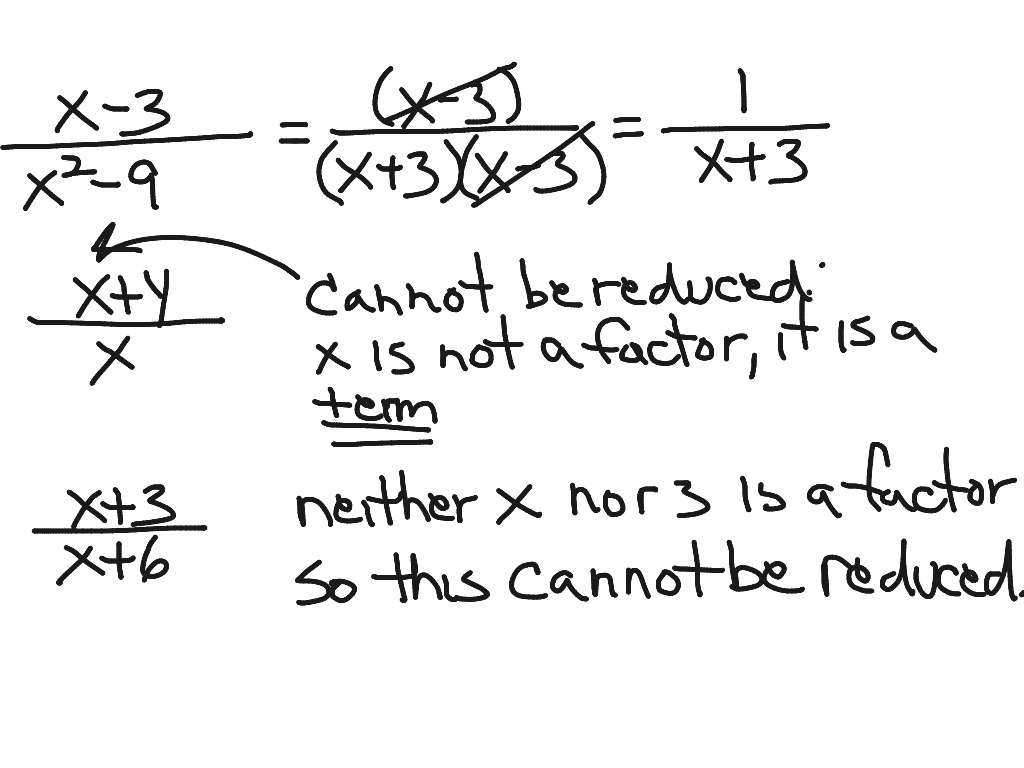 x-3 / x²-9 = (x-3) / (x+3)(x-3) = 1 / x+3
x+y / x
cannot be reduced:
x is not a factor, it is a
term
x+3 / x+6
neither x nor 3 is a factor
so this cannot be reduced.